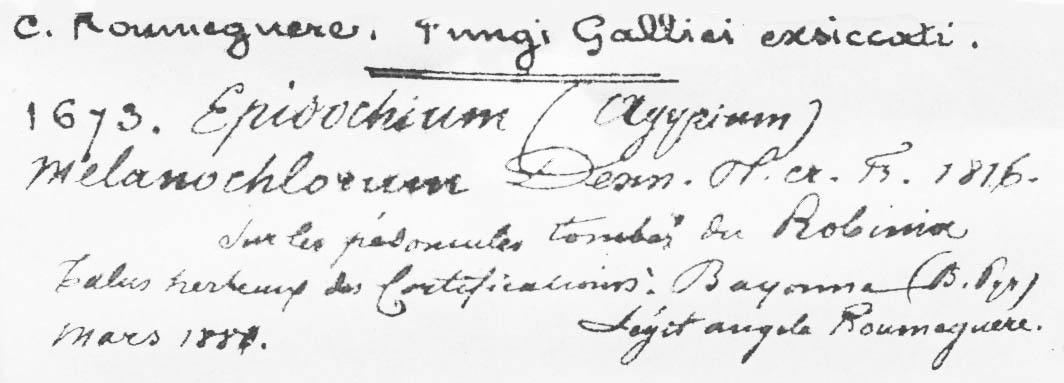 C. Roumeguere. Fungi Gallici exsiccati.
1673. Epidochium (Agyrium)
Melanochlorum Desm. Pl. cr. Fr. 1816.
Sur les pédoncules tombés du Robinia
Talus herbeux des fortifications. Bayonne (B. Pyr)
Mars 1881.
Légit angele Roumeguère.